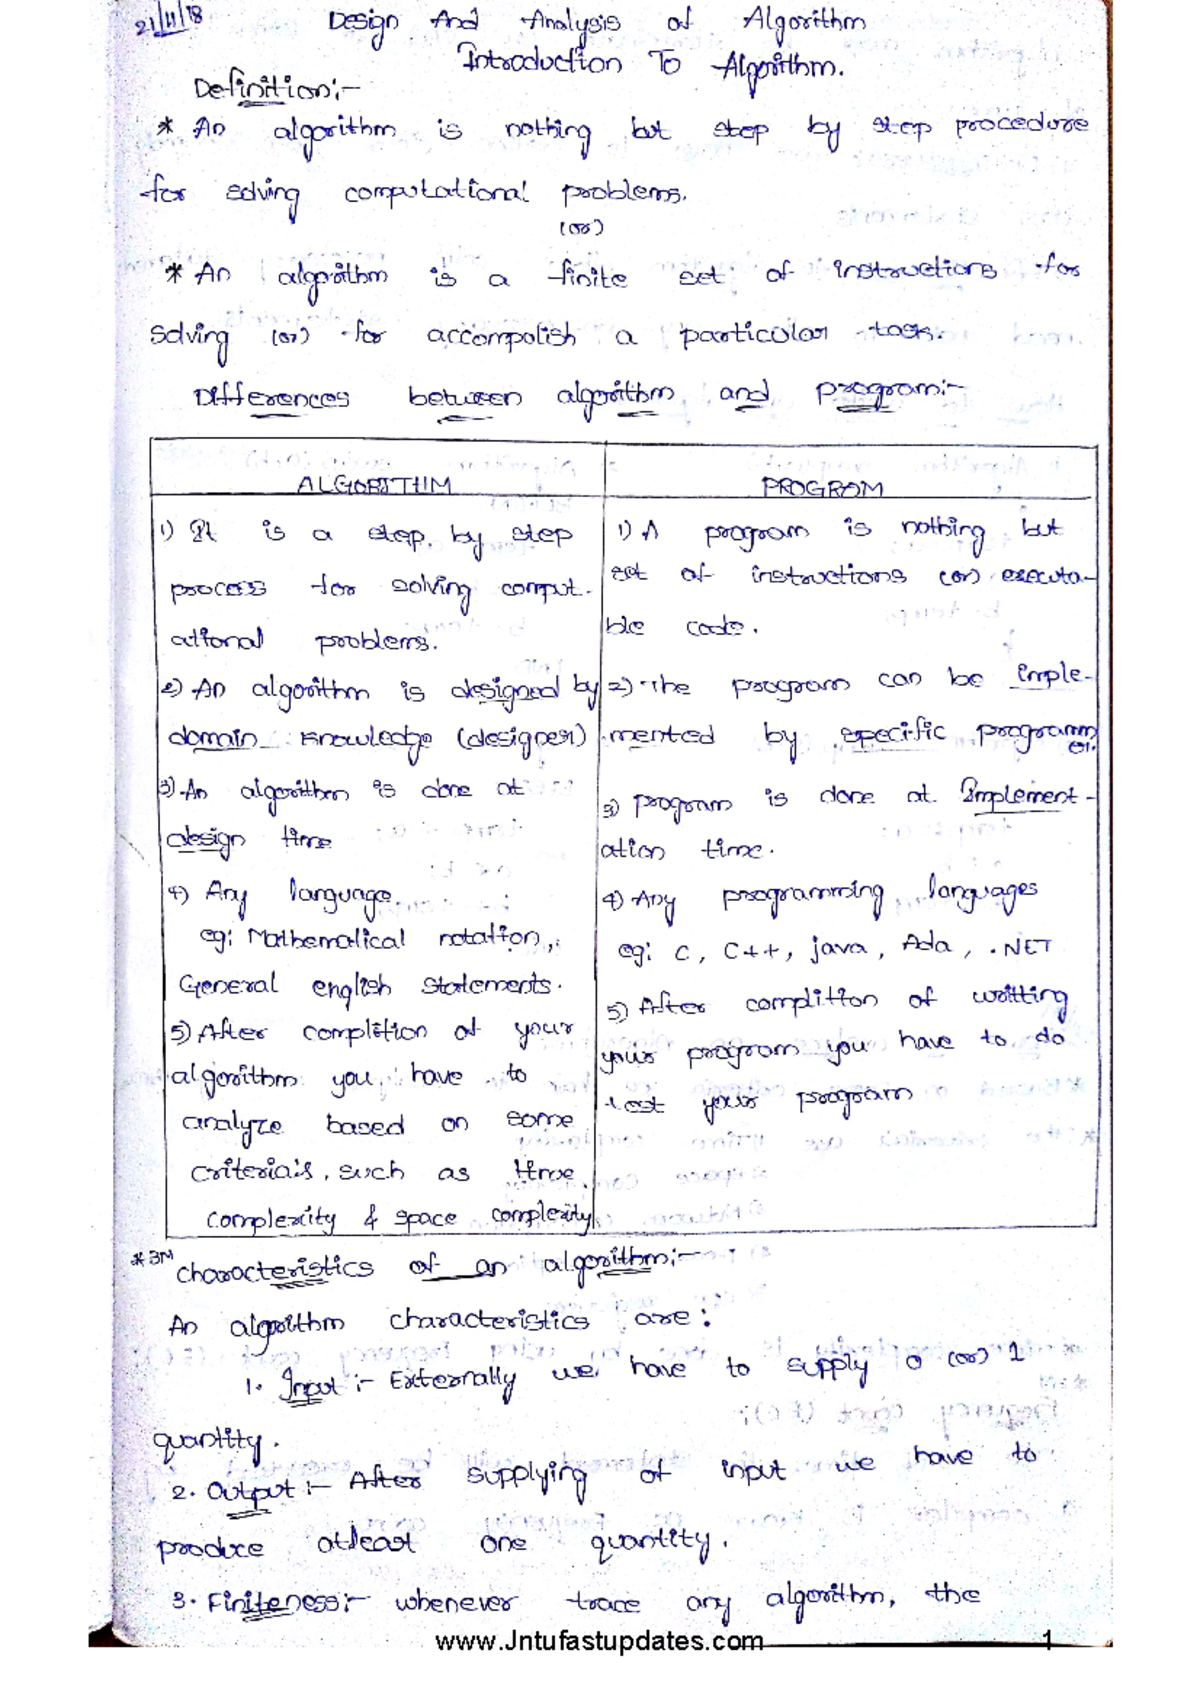 21/11/18
Design And Analysis of Algorithm
Introduction To Algorithm.
Definition:-
* An algorithm is nothing but step by step procedure
for solving computational problems.
(or)
* An algorithm is a finite set of instructions for
solving (or) for accompolish a particular task.
Differences between algorithm and program:-
ALGORITHM
1) It is a step by step
process for solving comput-
ational problems.
2) An algorithm is designed by
domain knowledge (designer)
3) An algorithm is done at
design time
4) Any language.
eg: Mathematical notation,
General english statements.
5) After completion of your
algorithm you have to
analyze based on some
criteria's, such as time
complexity & space complexity
PROGRAM
1) A program is nothing but
set of instructions (or) executa-
ble code.
2) The program can be imple-
mented by specific programm
er.
3) program is done at Implement-
ation time.
4) Any programming languages
eg: C, C++, java, Ada, .NET
5) After complition of writting
your program you have to do
test your program
* 3M
Characteristics of an algorithm:-
An algorithm characteristics are:
1. Input :- Externally we have to supply 0 (or) 1
quantity.
2. Output :- After supplying of input we have to
produce atleast one quantity.
3. Finiteness:- whenever trace any algorithm, the
www.Jntufastupdates.com
1